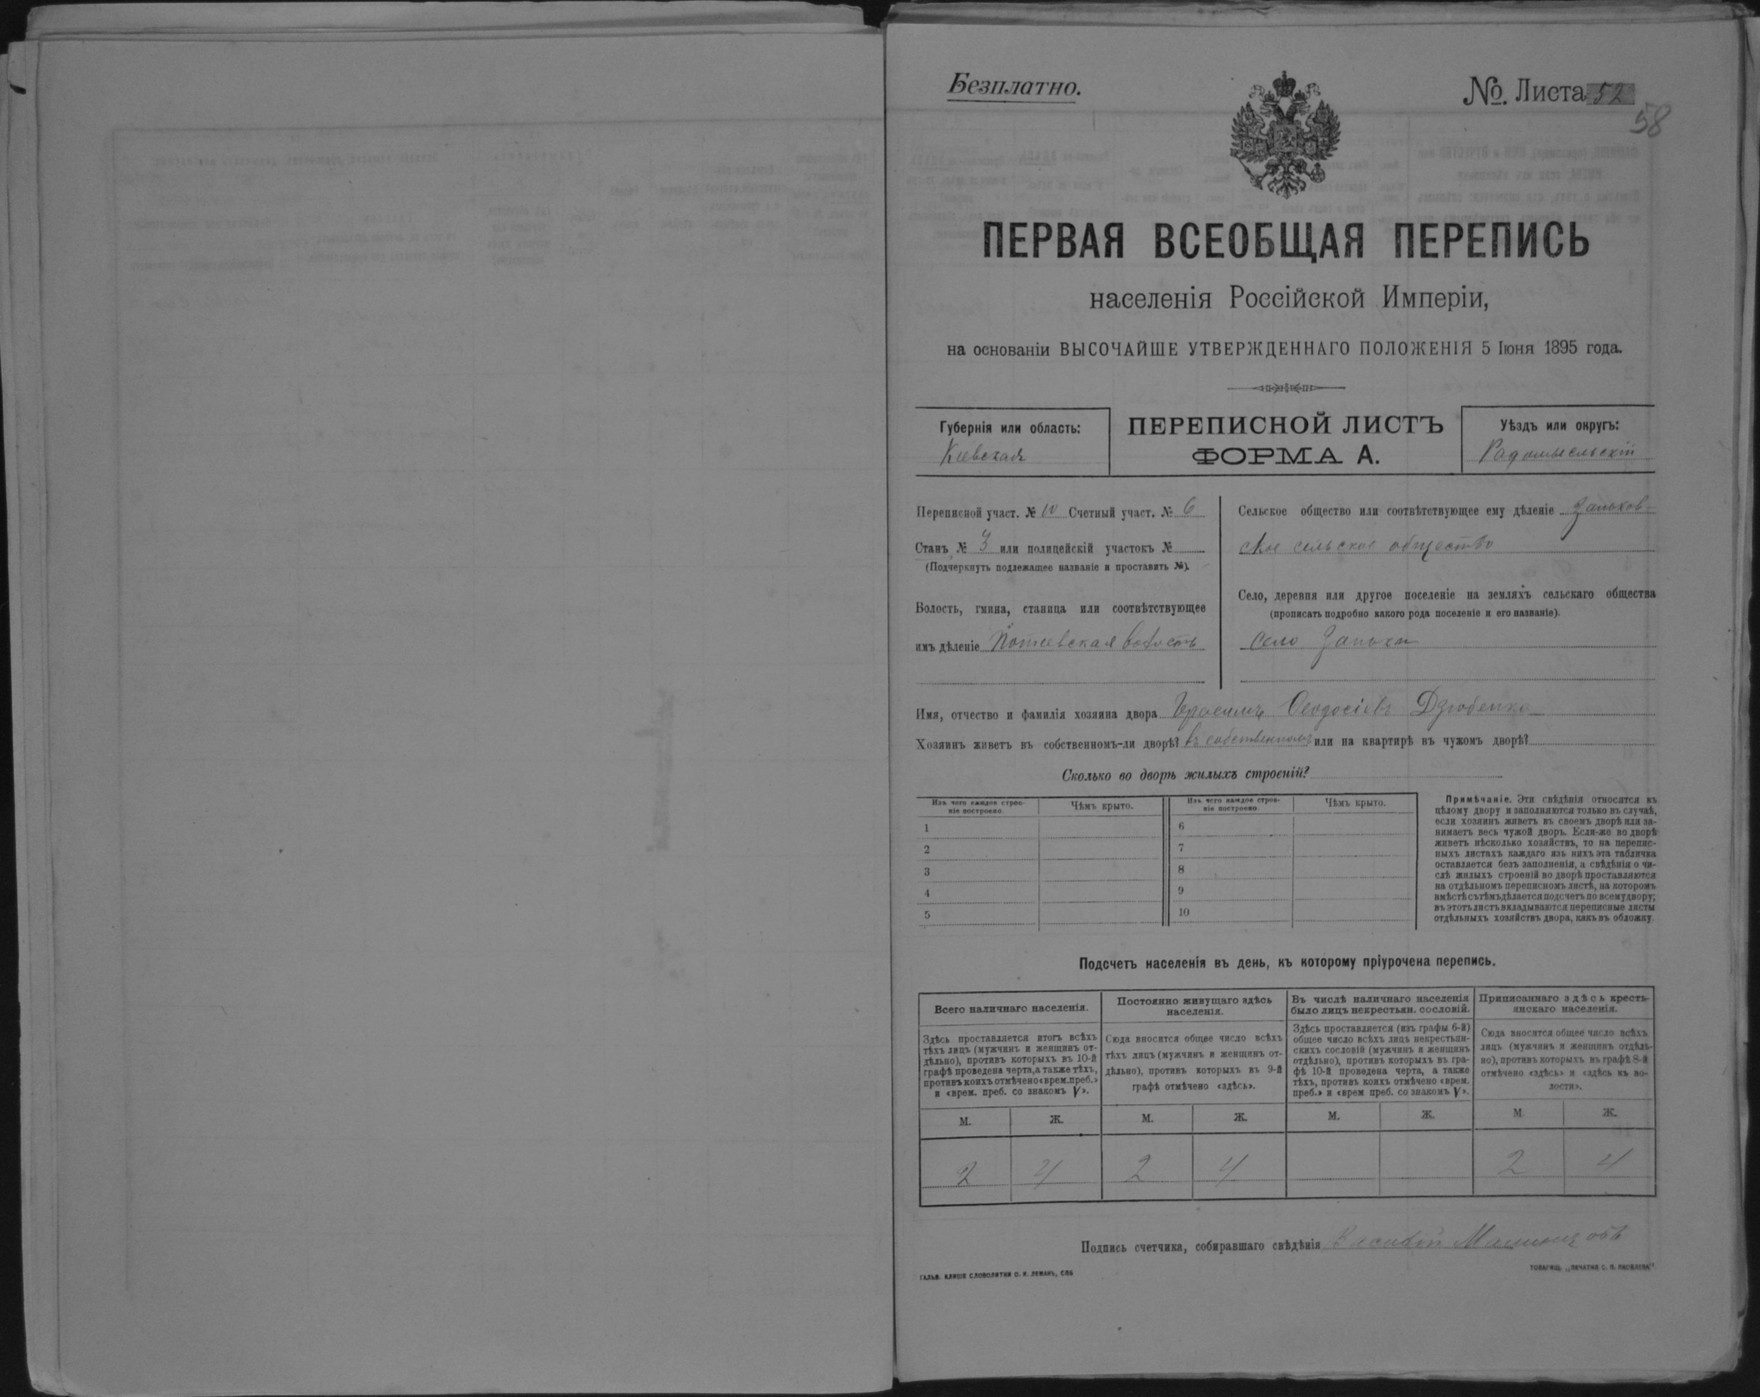 Безплатно.
№. Листа 52
58
ПЕРВАЯ ВСЕОБЩАЯ ПЕРЕПИСЬ
населенія Россійской Имперіи,
на основаніи ВЫСОЧАЙШЕ УТВЕРЖДЕННАГО ПОЛОЖЕНІЯ 5 Іюня 1895 года.
Губернія или область:
Кіевская
ПЕРЕПИСНОЙ ЛИСТЪ
ФОРМА А.
Уѣздъ или округъ:
Радомысльскій
Переписной участ. № 10 Счетный участ. № 6
Станъ № 3 или полицейскій участокъ №
(Подчеркнуть подлежащее названіе и проставить №).
Волость, гмина, станица или соотвѣтствующее
имъ дѣленіе волость
Сельское общество или соотвѣтствующее ему дѣленіе
сельское общество
Село, деревня или другое поселеніе на земляхъ сельскаго общества
(прописать подробно какого рода поселеніе и его названіе).
село
Имя, отчество и фамилія хозяина двора Герасимъ Ѳеодосіевъ Дзюбенко
Хозяинъ живетъ въ собственномъ-ли дворѣ? въ собственномъ или на квартирѣ въ чужомъ дворѣ?
Сколько во дворѣ жилыхъ строеній?
Изъ чего каждое строе-
ніе построено.
Чѣмъ крыто.
Изъ чего каждое строе-
ніе построено
Чѣмъ крыто.
1
2
3
4
5
6
7
8
9
10
Примѣчаніе. Эти свѣдѣнія относятся къ
цѣлому двору и заполняются только въ случаѣ,
если хозяинъ живетъ въ своемъ дворѣ или за-
нимаетъ весь чужой дворъ. Если-же во дворѣ
живетъ нѣсколько хозяйствъ, то на перепис-
ныхъ листахъ каждаго изъ нихъ эта табличка
оставляется безъ заполненія, а свѣдѣнія о чи-
слѣ жилыхъ строеній во дворѣ проставляются
на отдѣльномъ переписномъ листѣ, на которомъ
вмѣстѣ съ тѣмъ дѣлается подсчетъ по всему двору;
въ этотъ листъ вкладываются переписные листы
отдѣльныхъ хозяйствъ двора, какъ въ обложку.
Подсчетъ населенія въ день, къ которому пріурочена перепись.
Всего наличнаго населенія.
Здѣсь проставляется итогъ всѣхъ
тѣхъ лицъ (мужчинъ и женщинъ от-
дѣльно), противъ которыхъ въ 10-й
графѣ проведена черта, а также тѣхъ,
противъ коихъ отмѣчено «врем. преб.»
и «врем. преб. со знакомъ V».
М. Ж.
2 4
Постоянно живущаго здѣсь
населенія.
Сюда вносится общее число всѣхъ
тѣхъ лицъ (мужчинъ и женщинъ от-
дѣльно), противъ которыхъ въ 9-й
графѣ отмѣчено «здѣсь».
М. Ж.
2 4
Въ числѣ наличнаго населенія
было лицъ некрестьян. сословій.
Здѣсь проставляется (изъ графы 6-й)
общее число всѣхъ лицъ некрестьян-
скихъ сословій (мужчинъ и женщинъ
отдѣльно), противъ которыхъ въ гра-
фѣ 10-й проведена черта, а также
тѣхъ, противъ коихъ отмѣчено «врем.
преб.» и «врем преб. со знакомъ V».
М. Ж.
Приписаннаго здѣсь кресть-
янскаго населенія.
Сюда вносится общее число всѣхъ
лицъ (мужчинъ и женщинъ отдѣль-
но), противъ которыхъ въ графѣ 8-й
отмѣчено «здѣсь» и «здѣсь въ во-
лости».
М Ж.
2 4
Подпись счетчика, собиравшаго свѣдѣнія
ГАЛЬВ. КЛИШЕ СЛОВОЛИТНИ О. И. ЛЕМАНЪ, СПБ
ТОВАРИЩ. „ПЕЧАТНИ С. П. ЯКОВЛЕВА“.